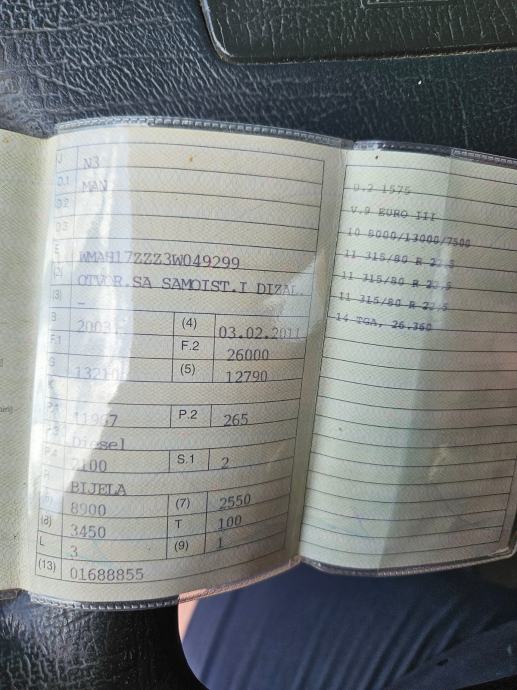 J N3
D.1 MAN
D.2
D.3
E WMAH17ZZZ3W049299
(2) OTVOR.SA SAMOIST.I DIZAL.
(3) –
B 2003 (4) 03.02.2011
F.1 F.2 26000
G 13210 (5) 12790
K
P.1 11967 P.2 265
P.3 Diesel
P.4 2100 S.1 2
R BIJELA
(6) 8900 (7) 2550
(8) 3450 T 100
L 3 (9) 1
(13) 01688855
D.2 1575
V.9 EURO III
10 8000/13000/7500
11 315/80 R 22,5
11 315/80 R 22,5
11 315/80 R 22,5
14 TGA, 26.360